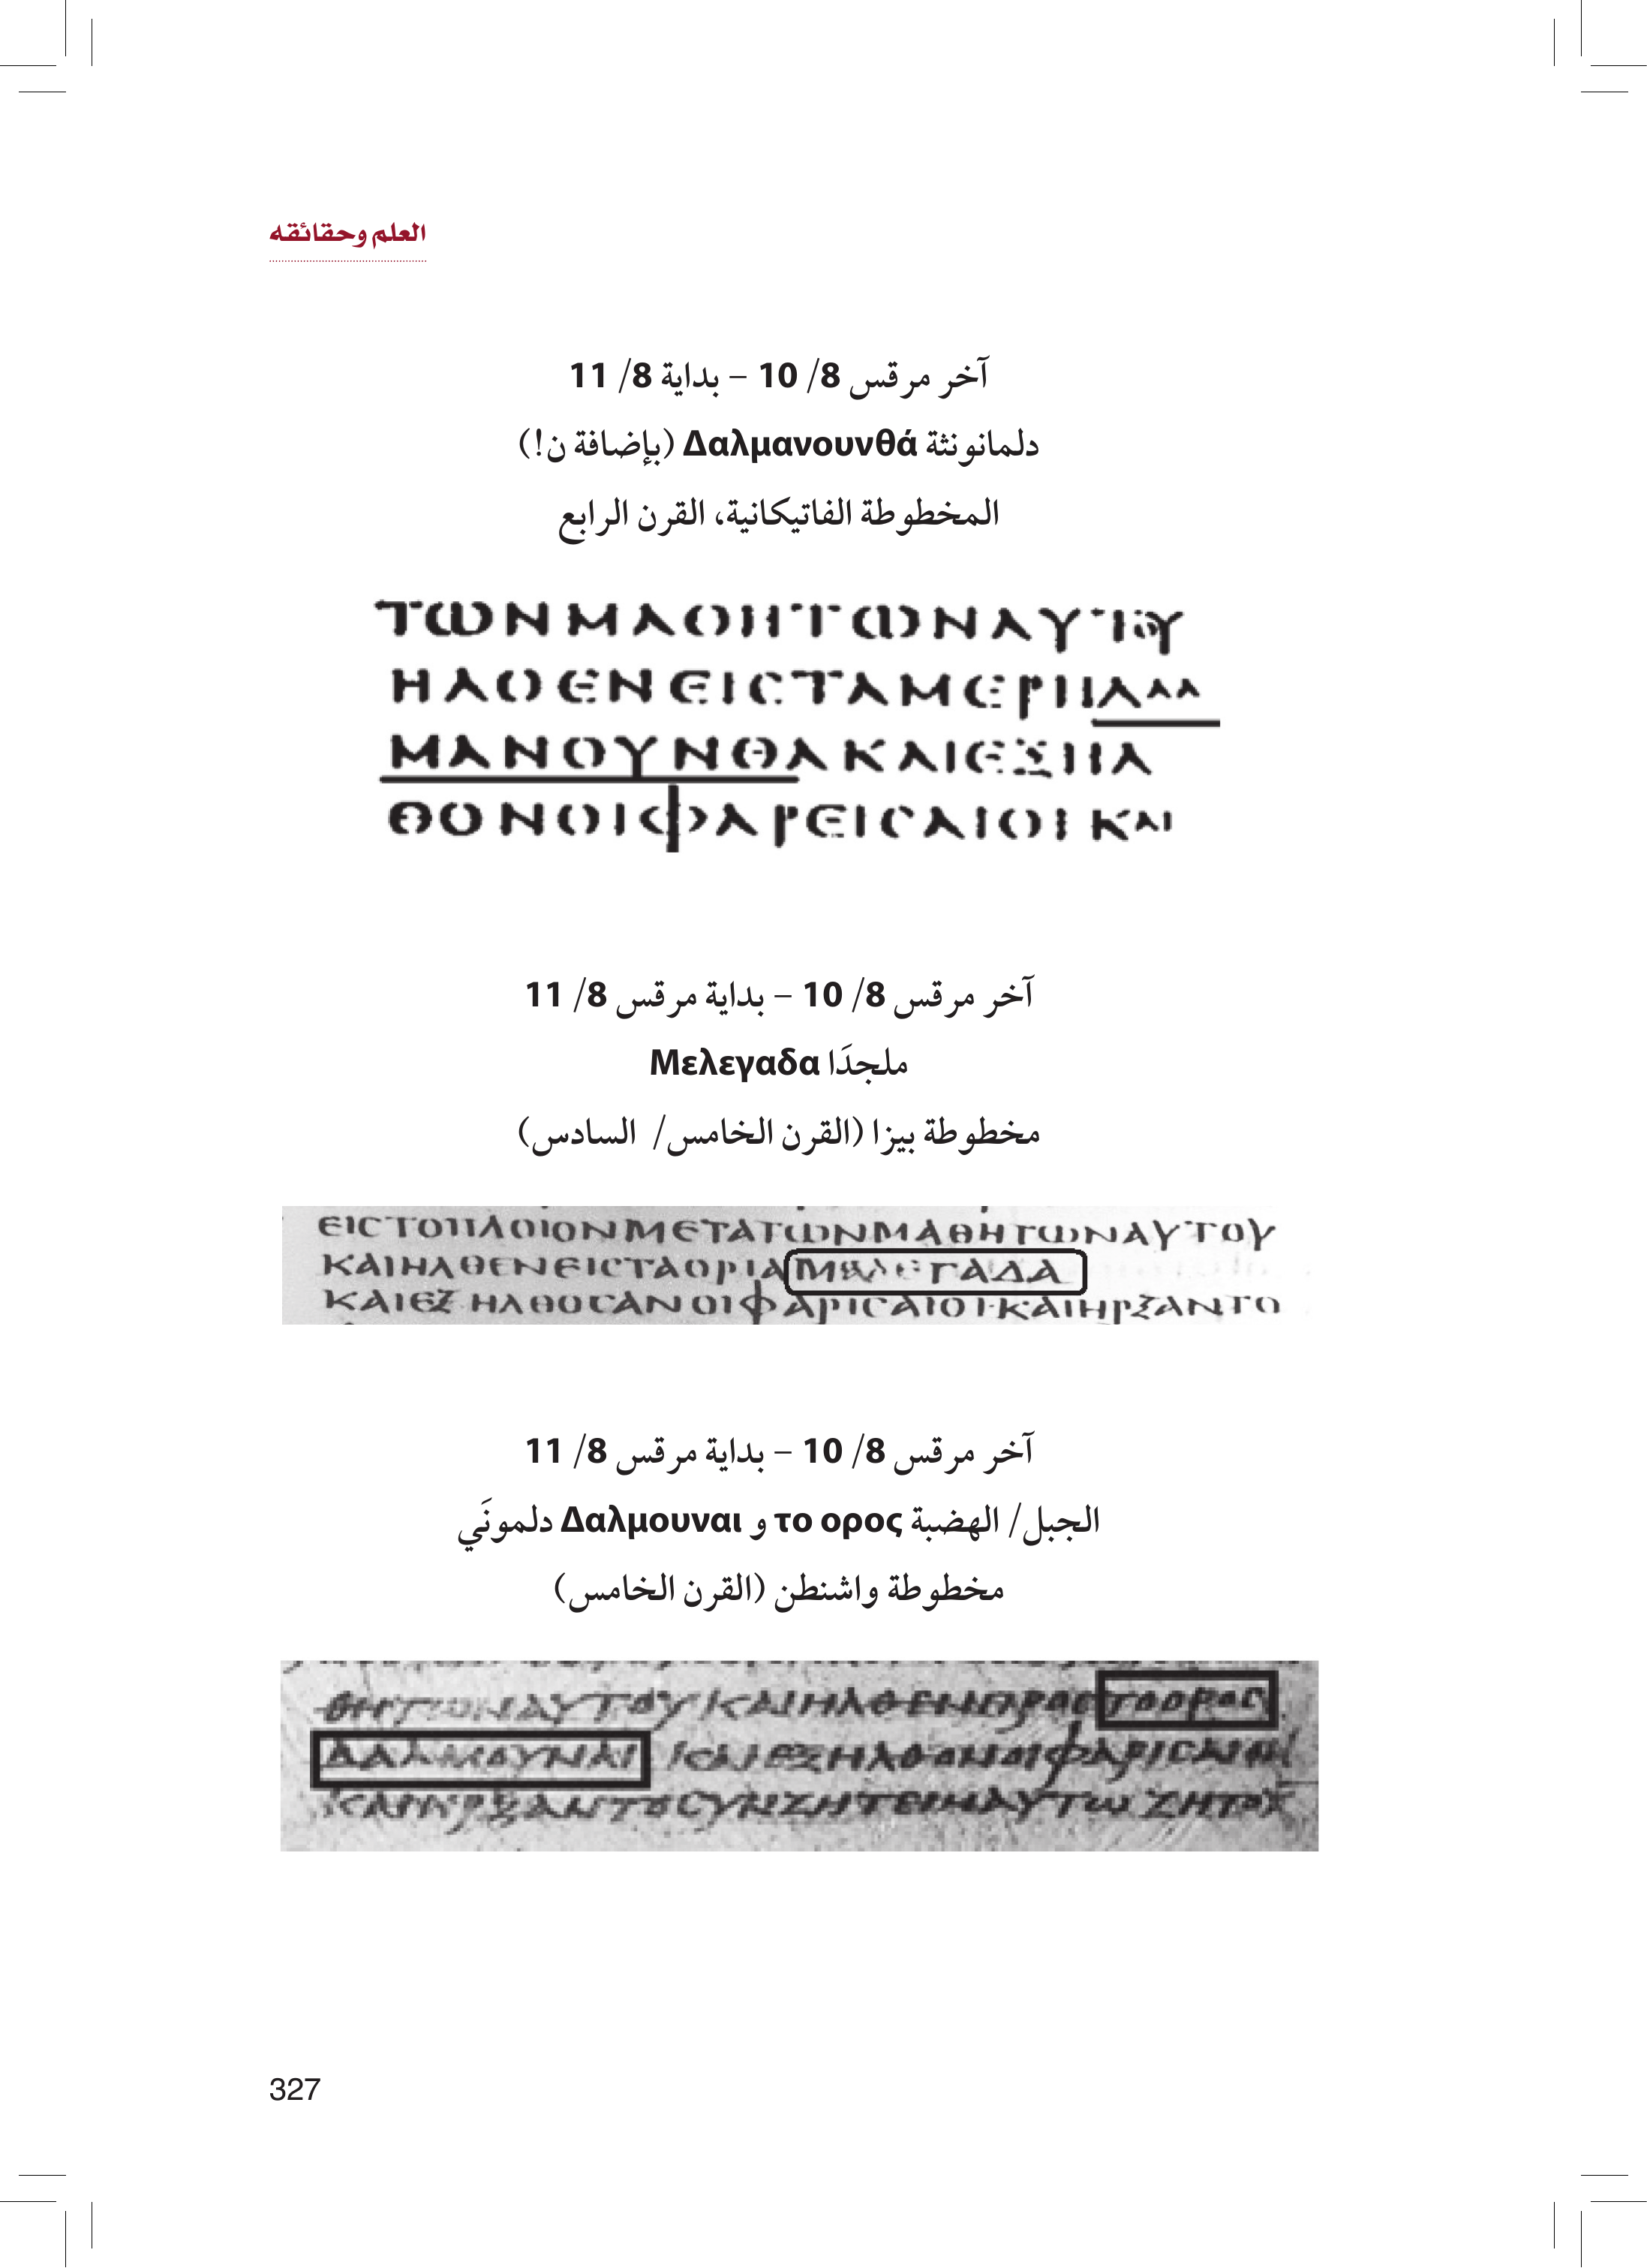 العلم وحقائقه
آخر مرقس 8/ 10 – بداية 8/ 11
دلمانونثة Δαλμανουνθά (بإضافة ن!)
المخطوطة الفاتيكانية، القرن الرابع
ΤωΝΜΑΘΗΤωΝΑΥΤΟΥ
ΗΛΘΕΝΕΙCΤΑΜΕΡΗΔΑΛ
ΜΑΝΟΥΝΘΑΚΑΙΕΞΗΛ
ΘΟΝΟΙΦΑΡΕΙCΑΙΟΙΚΑΙ
آخر مرقس 8/ 10 – بداية مرقس 8/ 11
ملجدَا Μελεγαδα
مخطوطة بيزا (القرن الخامس/ السادس)
ΕΙCΤΟΠΛΟΙΟΝΜΕΤΑΤωΝΜΑΘΗΤωΝΑΥΤΟΥ
ΚΑΙΗΛΘΕΝΕΙCΤΑΟΡΙΑΜΕΛΕΓΑΔΑ
ΚΑΙΕΞΗΛΘΟCΑΝΟΙΦΑΡΙCΑΙΟΙ·ΚΑΙΗΡΞΑΝΤΟ
آخر مرقس 8/ 10 – بداية مرقس 8/ 11
الجبل/ الهضبة το ορος و Δαλμουναι دلمونَي
مخطوطة واشنطن (القرن الخامس)
ΘΗΤωΝΑΥΤΟΥ ΚΑΙΗΛΘΕΝΠΡΟCΤΟΟΡΟC
ΔΑΛΜΟΥΝΑΙ ΚΑΙΕΞΗΛΘΟΝΟΙΦΑΡΙCΑΙΟΙ
ΚΑΙΗΡΞΑΝΤΟCΥΝΖΗΤΕΙΝΑΥΤω ΖΗΤΟΥ
327